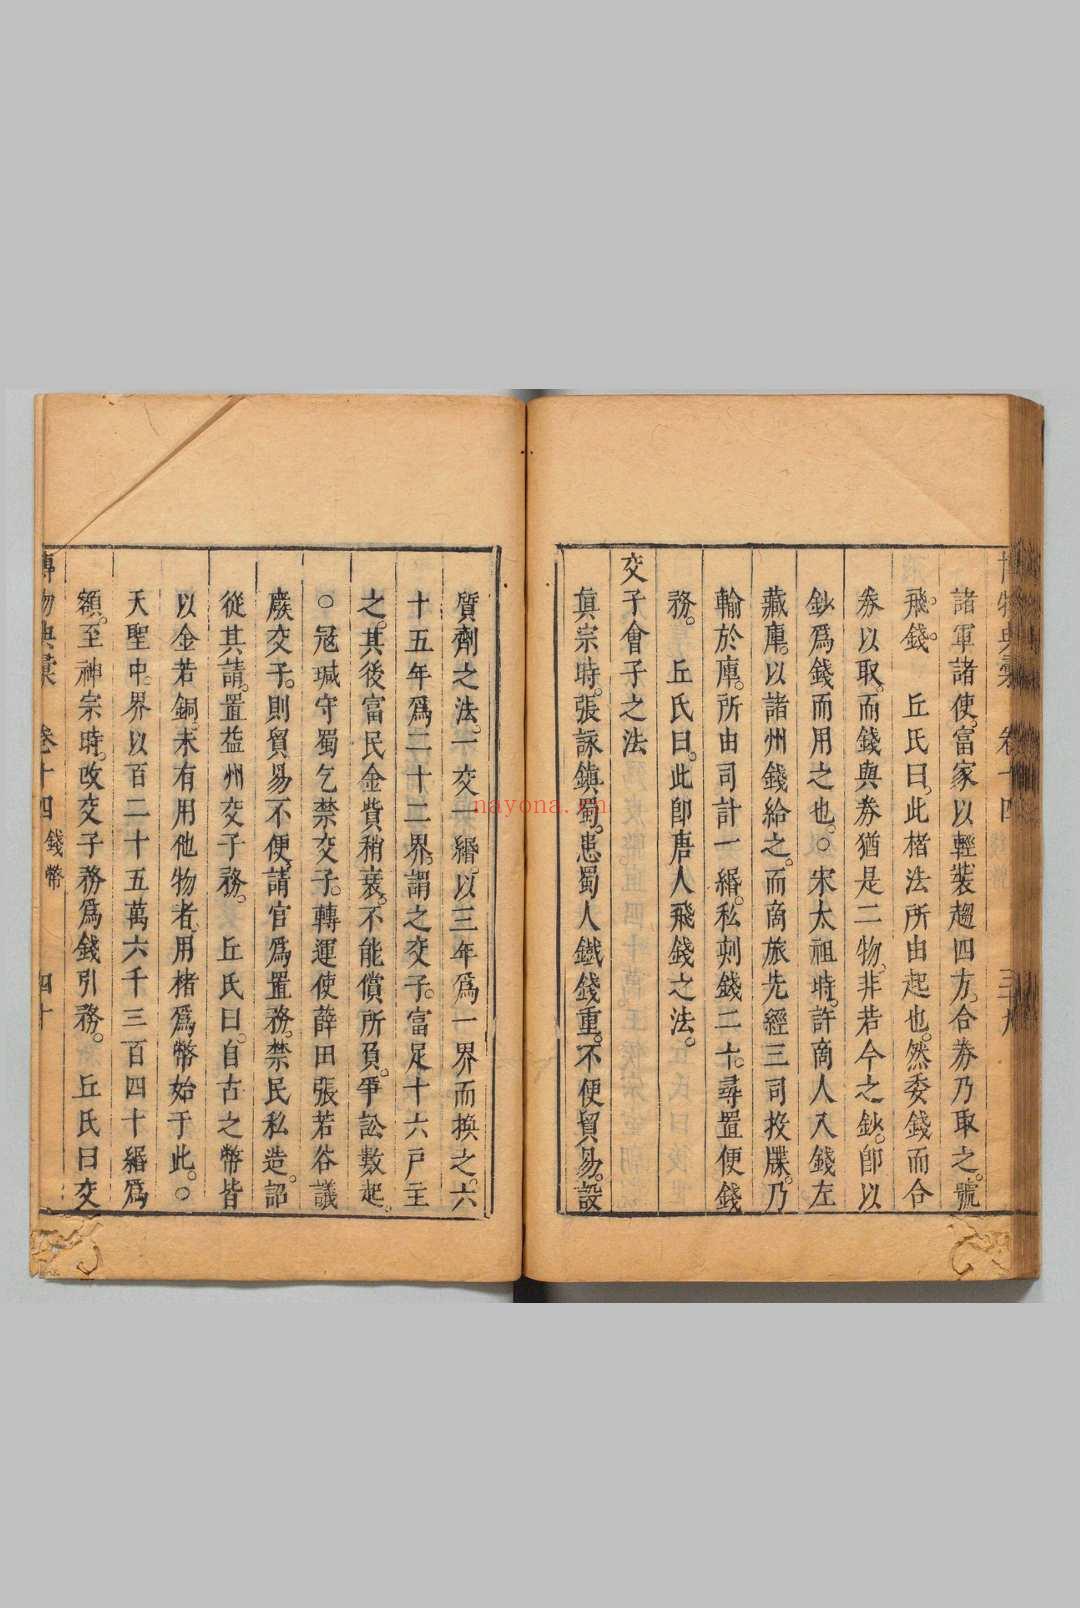 諸軍諸使。富家以輕裝趨四方。合券乃取之。號
飛錢。　丘氏曰。此楮法所由起也。然委錢而合
券以取。而錢與券猶是二物。非若今之鈔。卽以
鈔爲錢而用之也。○宋太祖時。許商人入錢左
藏庫。以諸州錢給之。而商旅先經三司投牒。乃
輸於庫。所由司計一緡。私刻錢二十。尋置便錢
務。　丘氏曰。此卽唐人飛錢之法。
交子會子之法
眞宗時。張詠鎮蜀。患蜀人鐵錢重。不便貿易。設
質劑之法。一交一緡。以三年爲一界而換之。六
十五年爲二十二界。謂之交子。富足十六戸主
之。其後富民金貲稍衰。不能償所負。爭訟數起。
○冦瑊守蜀乞禁交子。轉運使薛田張若谷議
廢交子。則貿易不便。請官爲置務。禁民私造。詔
從其請。置益州交子務。　丘氏曰。自古之幣皆
以金若銅。未有用他物者。用楮爲幣始于此。○
天聖中。界以百二十五萬六千三百四十緡爲
額。至神宗時。改交子務爲錢引務。　丘氏曰交
博物典彙　卷十四　錢幣　四十
nayona.cn